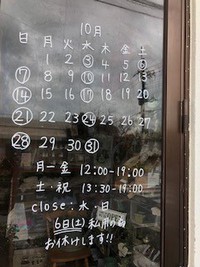 10月
日 月 火 水 木 金 土
1 2 ③ 4 5 ⑥
⑦ 8 9 ⑩ 11 12 13
⑭ 15 16 ⑰ 18 19 20
㉑ 22 23 ㉔ 25 26 27
㉘ 29 30 ㉛
月ー金 12:00-19:00
土・祝 13:30-19:00
close:水・日
6日(土)私用の為
お休けします!!